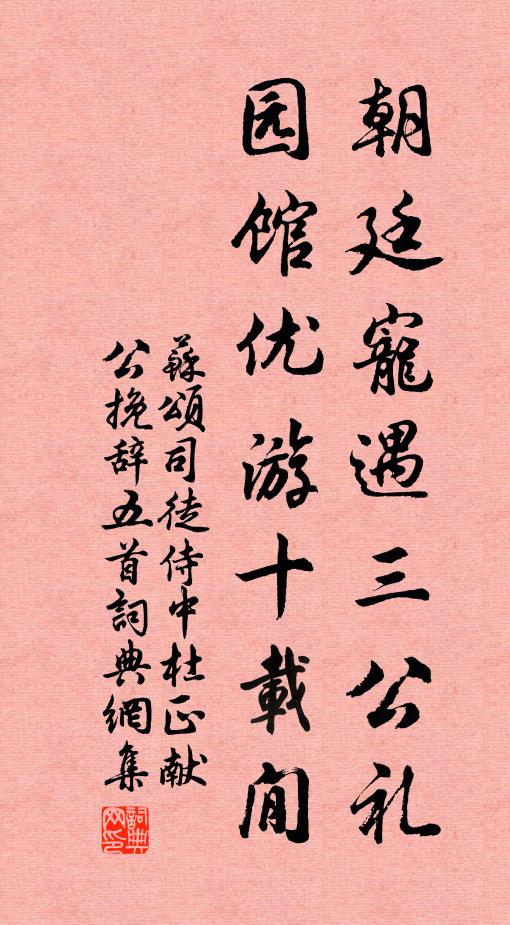 朝廷寵遇三公礼
园馆优游十載间
蘇頌司徒侍中杜正献
公挽辞五首詞典網集
詞典网印